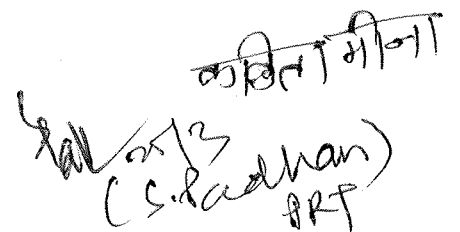 कविता मीना
(S. Pradhan)
PRT